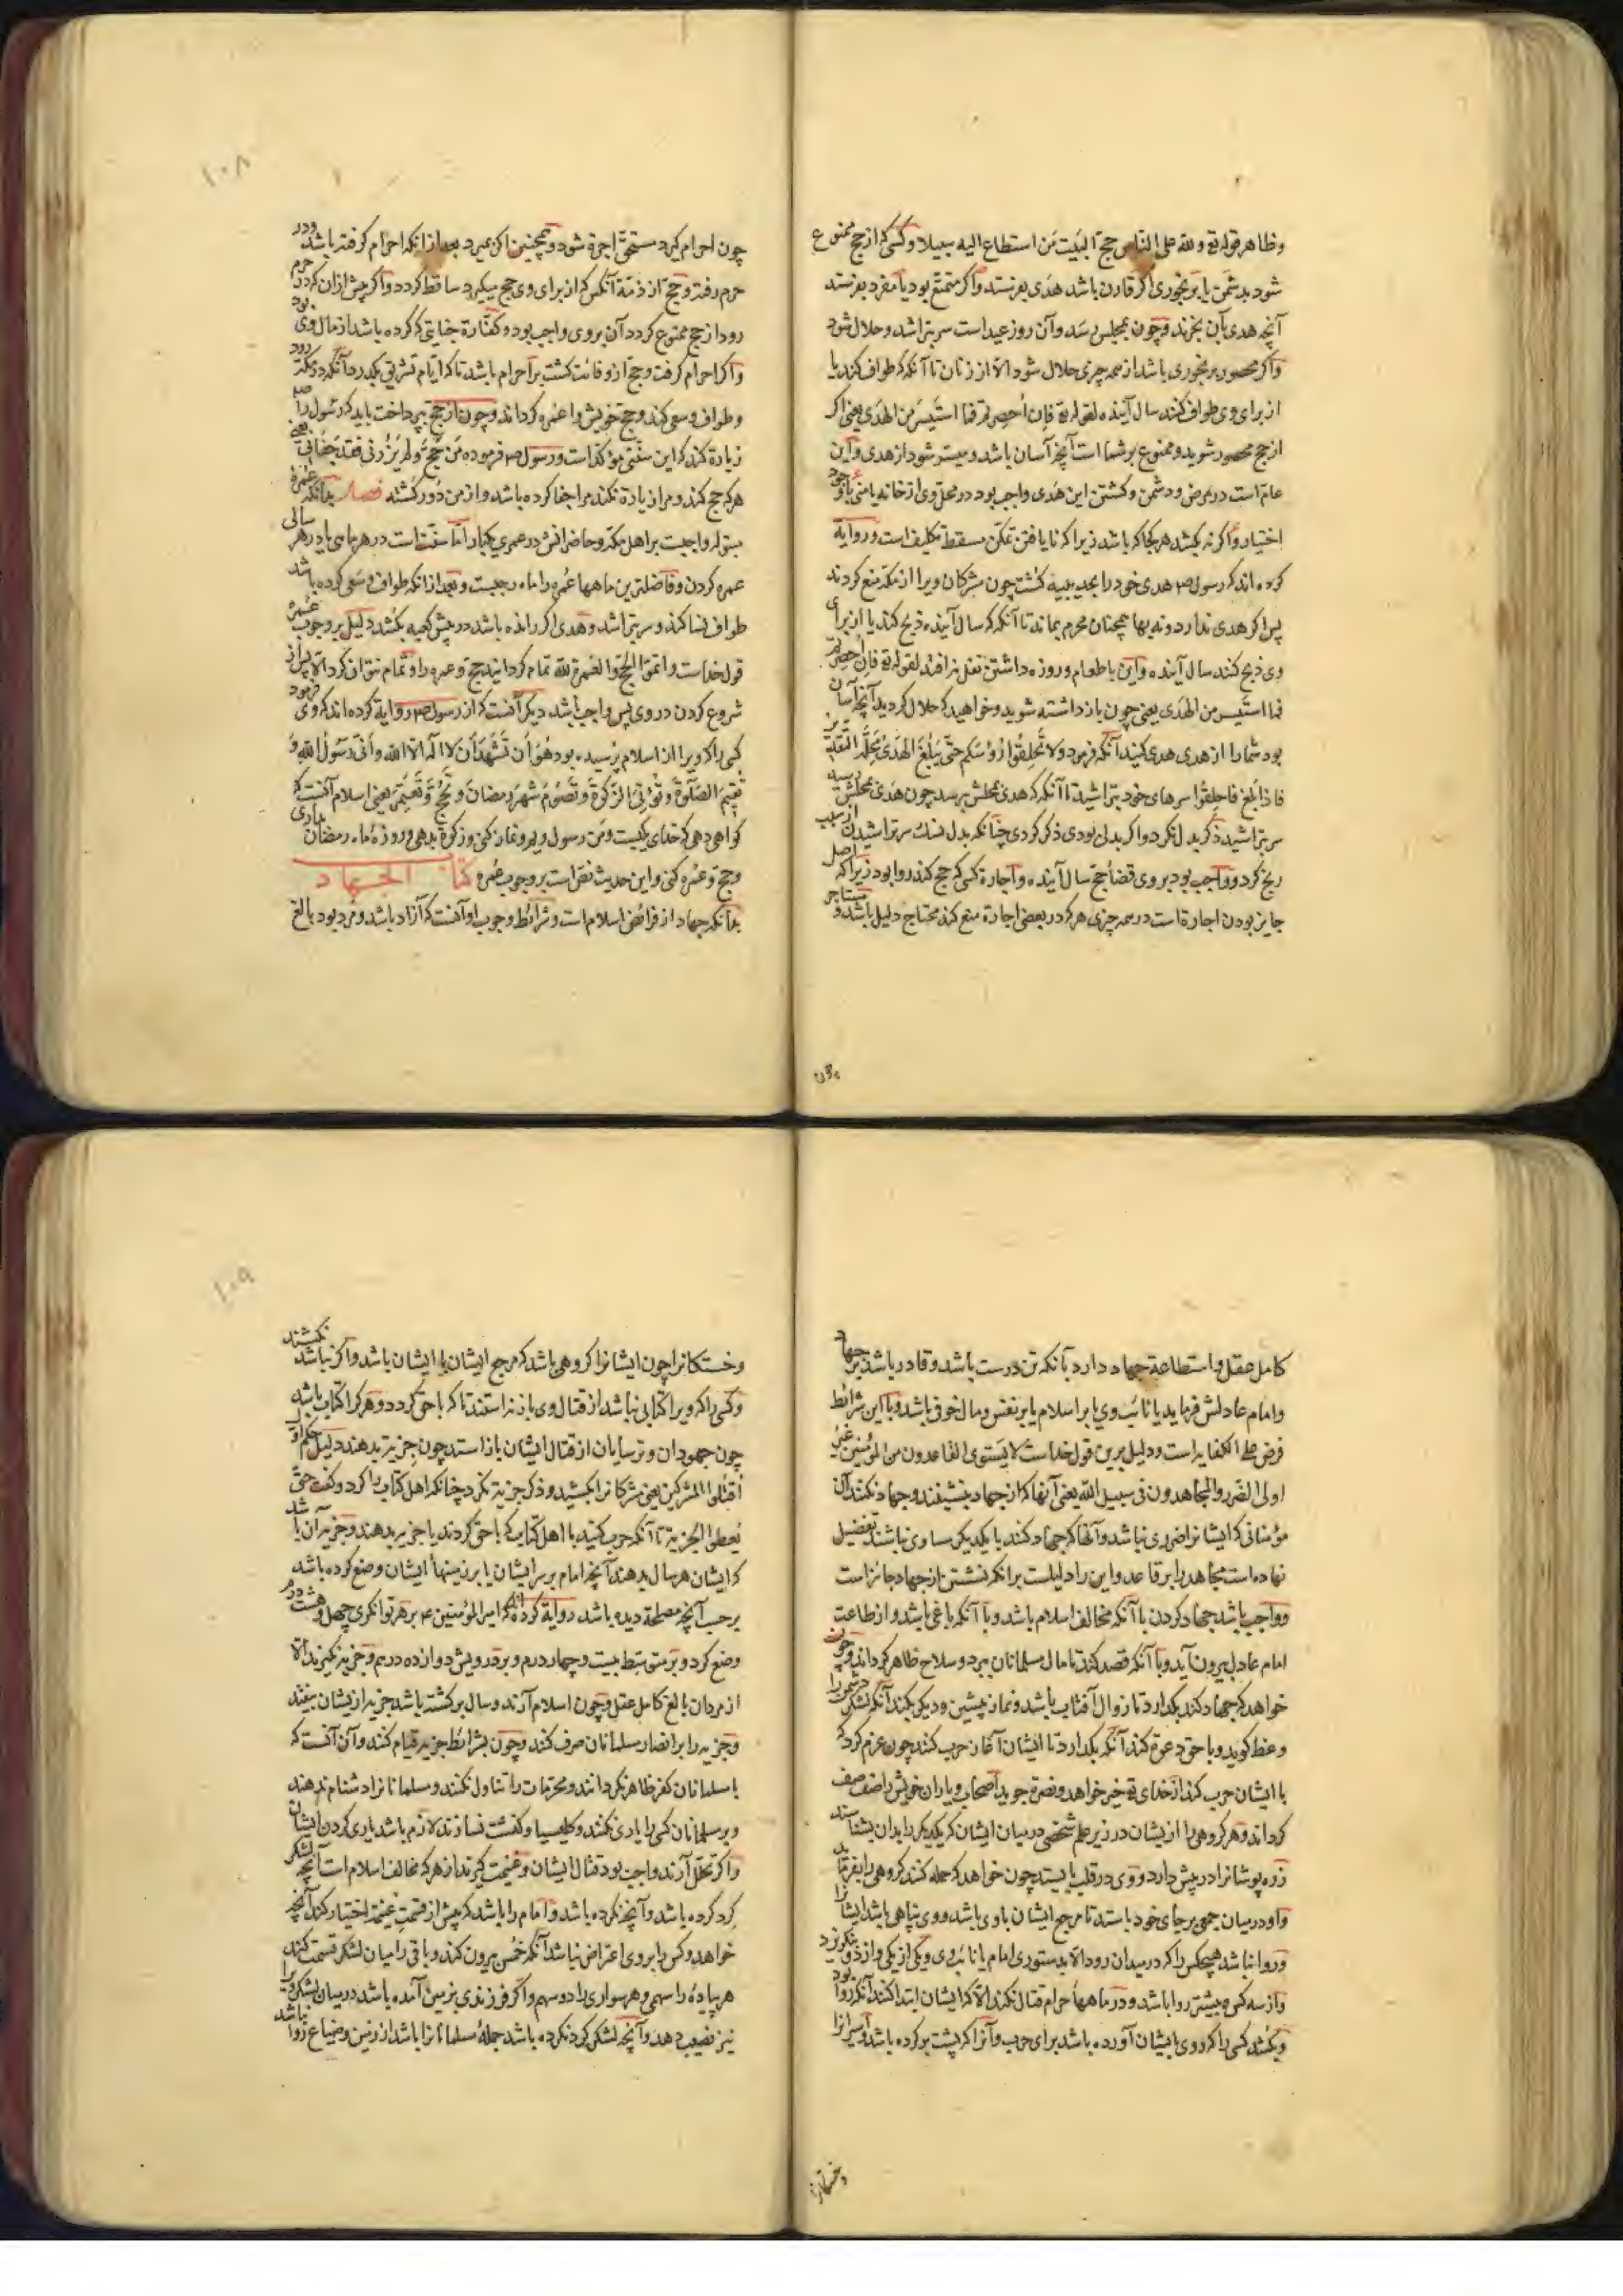 وظاهر قوله تع ولله على الناس حج البيت من استطاع اليه سبيلا وکسی که از حج ممنوع
شود بدشمن یا برنجوری اکر قارن باشد هدی بفرستد واکر متمتع بود یا مفرد بفرستد
آنچه هدی بآن بخرند وچون بمحلش رسد وآن روز عید است سر بتراشد وحلال شود
واکر محصور برنجوری باشد از همه چیزی حلال شود الا از زنان تا آنکه که طواف کند یا
از برای وی طواف کنند سال آینده لقوله تع فان احصرتم فما استیسر من الهدی یعنی اکر
از حج محصور شوید وممنوع بر شما است آنچه آسان باشد ومیسر شود از هدی واین
عام است در مرض ودشمن وکشتن این هدی واجب بود در محل وی از خانه یا منی با وجود
اختیار واکر نه بکشد هر کجا که باشد زیرا که نایافتن تمکن مسقط تکلیف است وروایة
کرده اند که رسول ص هدی خود را بحدیبیه کشت چون مشرکان ویرا از مکه منع کردند
پس اکر هدی ندارد ونه بها همچنان محرم بماند تا آنکه که سال آینده ذبح کند یا از برای
وی ذبح کنند سال آینده واین با طعام وروزه داشتن نقل نه افتد لقوله تع فان احصرتم
فما استیسر من الهدی یعنی چون بازداشته شوید وخواهید که حلال کردید آنچه آسان
بود شما را از هدی هدی کنید آنکه فرمود ولا تحلقوا رؤسکم حتی یبلغ الهدی محله
فاذا بلغ فاحلقوا سرهای خود بتراشید تا آنکه که هدی بمحلش برسد چون هدی بمحلش رسید
سر بتراشید ذکر بدل نکرد واکر بدل بودی ذکر کردی چنانکه بدل نسک سر تراشیدن از سبب
رنج کرد وواجب بود بر وی قضا حج سال آینده واجارة کسی که حج کند روا بود زیرا که اصل
جایز بودن اجارة است در همه چیزی هر که در بعضی اجارة منع کند محتاج دلیل باشد و مستاجر
چون
چون احرام کیرد مستحق اجرة شود وهمچنین اکر بمیرد بعد از انکه احرام کرفته باشد ودر
حرم رفته وحج از ذمة آنکس که از برای وی حج میکیرد ساقط کردد واکر پیش از ان که در حرم
رود از حج ممنوع کردد آن بر وی واجب بود وکفارة جنایتی که کرده باشد از مال وی بود
واکر احرام کرفت وحج ازو فائت کشت بر احرام باشد تا که ایام تشریق بکذرد آنکه در مکه رود
وطواف وسعی کند وحج خویش را عمره کرداند وچون از حج بپرداخت باید که رسول را ص
زیارة کند که این سنتی مؤکد است ورسول ص فرموده من حج ولم یزرنی فقد جفانی یعنی
هر که حج کند ومرا زیارة نکند مرا جفا کرده باشد واز من دور کشته فصل بدانکه عمره
مبتوله واجبست بر اهل مکه وحاضرانش در عمری یکبار اما سنت است در هر ماهی یا در هر سالی
عمره کردن وفاضلترین ماهها عمره را ماه رجبست وبعد از انکه طواف وسعی کرده باشد
طواف نسا کند وسر بتراشد وهدی اکر رانده باشد در پیش کعبه بکشد دلیل بر وجوب عمره
قول خداست واتموا الحج والعمرة لله تمام کردانید حج وعمره را وتمام نتوان کرد الا پس از
شروع کردن در وی پس واجب باشد دیکر آنست که از رسول ص روایة کرده اند که وی فرمود
کسی را که ویرا از اسلام پرسیده بود هو ان تشهد ان لا اله الا الله وانی رسول الله و
تقیم الصلوة وتؤتی الزکوة وتصوم شهر رمضان وتحج وتعتمر یعنی اسلام آنست که
کواهی دهی که خدای یکیست ومن رسول ویم ونماز کنی وزکوة بدهی وروزه ماه رمضان بداری
وحج وعمره کنی واین حدیث نص است بر وجوب عمره کتاب الجهاد
بدانکه جهاد از فرائض اسلام است وشرائط وجوب او آنست که آزاد باشد ومرد بود بالغ
۱۰۸
کامل عقل واستطاعة جهاد دارد بآنکه تن درست باشد وقادر باشد بر جهاد
وامام عادلش فرماید یا نائب وی یا بر اسلام یا بر نفس ومال خوفی باشد وبا این شرائط
فرض علی الکفایه است ودلیل برین قول خداست لا یستوی القاعدون من المؤمنین غیر
اولی الضرر والمجاهدون فی سبیل الله یعنی آنها که از جهاد بنشینند وجهاد نکنند از
مؤمنانی که ایشانرا ضرری نباشد وآنها که جهاد کنند با یکدیکر مساوی نباشند تفضیل
نهاده است مجاهد را بر قاعد واین را دلیلست برانکه نشستن از جهاد جائز است
وواجب باشد جهاد کردن با آنکه مخالف اسلام باشد وبا آنکه باغی باشد واز طاعت
امام عادل بیرون آید وبا آنکه قصد کند تا مال مسلمانان ببرد وسلاح ظاهر کرداند وچون
خواهد که جهاد کند بکذارد تا زوال آفتاب باشد ونماز پیشین ودیکر بکند آنکه لشکر دشمن را
وعظ کوید وبا حق دعوة کند آنکه بکذارد تا ایشان آغاز حرب کنند چون عزم کرد که
با ایشان حرب کند از خدای تع خیر خواهد ونصرة جوید اصحاب ویاران خویش را صف صف
کرداند وهر کروهی را از یشان در زیر علم شخصی در میان ایشان که یکدیکر را بدان بشناسند
زره پوشانرا در پیش دارد ووی در قلب بایستد چون خواهد که حمله کنند کروهی را بفرماید
واو در میان جمعی بر جای خود باستد تا مرجع ایشان باوی باشد ووی پناهی باشد ایشانرا
وروا نباشد هیچکس را که در میدان رود الا بدستوری امام یا نائب وی ویکی از یکی واز دو نکریزد
واز سه کس وبیشتر روا باشد ودر ماهها حرام قتال نکند الا که ایشان ابتدا کنند آنکه روا بود
وبکشد کسی را که روی بایشان آورده باشد برای حرب وآنرا که پشت بر کرده باشد واسیرانرا
وخستکانرا
وخستکانرا چون ایشانرا کروهی باشد که مرجع ایشان با ایشان باشد واکر نباشد نکشند
وکسی را که ویرا کتابی نباشد از قتال وی باز نه استند تا که باحق کردد وهر کرا کتاب باشد
چون جهودان وترسایان از قتال ایشان باز استد چون جزیه بدهند دلیل حکم اول
اقتلوا المشرکین یعنی مشرکانرا بکشید وذکر جزیه نکرد چنانکه اهل کتاب را کرد وکفت حتی
یعطوا الجزیة تا آنکه حرب کنید با اهل کتاب که باحق کردند یا جزیه بدهند وجزیه آن باشد
که ایشان هر سال بدهند آنچه امام بر سر ایشان یا بر زمینها ایشان وضع کرده باشد
بر حسب آنچه مصلحة دیده باشد روایة کرده اند که امیر المؤمنین ع بر هر توانکری چهل وهشت درم
وضع کرد وبر متوسط بیست وچهار درم وبر درویش دوازده درم وجزیه نکیرند الا
از مردان بالغ کامل عقل وچون اسلام آرند وسال برکشته باشد جزیه از یشان بیفتد
وجزیه را بر انصار مسلمانان صرف کنند وچون بشرائط جزیه قیام کنند وآن آنست که
با مسلمانان کفر ظاهر نکردانند ومحرمات را تناول نکنند ومسلمانانرا دشنام ندهند
وبر مسلمانان کسی را یاری نکنند وکلیسیا وکنشت نسازند لازم باشد یاری کردن ایشان
واکر تخلل آرند واجب بود قتال ایشان وغنیمت کیرند از هر که مخالف اسلام است آنچه لشکر
کرد کرده باشد وآنچه نکرده باشد وامام را باشد که پیش از قسمت غنیمة اختیار کند آنچه
خواهد وکس را بر وی اعتراض نباشد آنکه خمس بیرون کند وباقی را میان لشکر قسمت کند
هر پیاده را سهمی وهر سواری را دو سهم واکر فرزندی بزمین آمده باشد در میان لشکر ویرا
نیز نصیب دهد وآنچه لشکر کرد نکرده باشد جملة مسلمانانرا باشد از زمین وضیاع وروا نباشد
۱۰۹